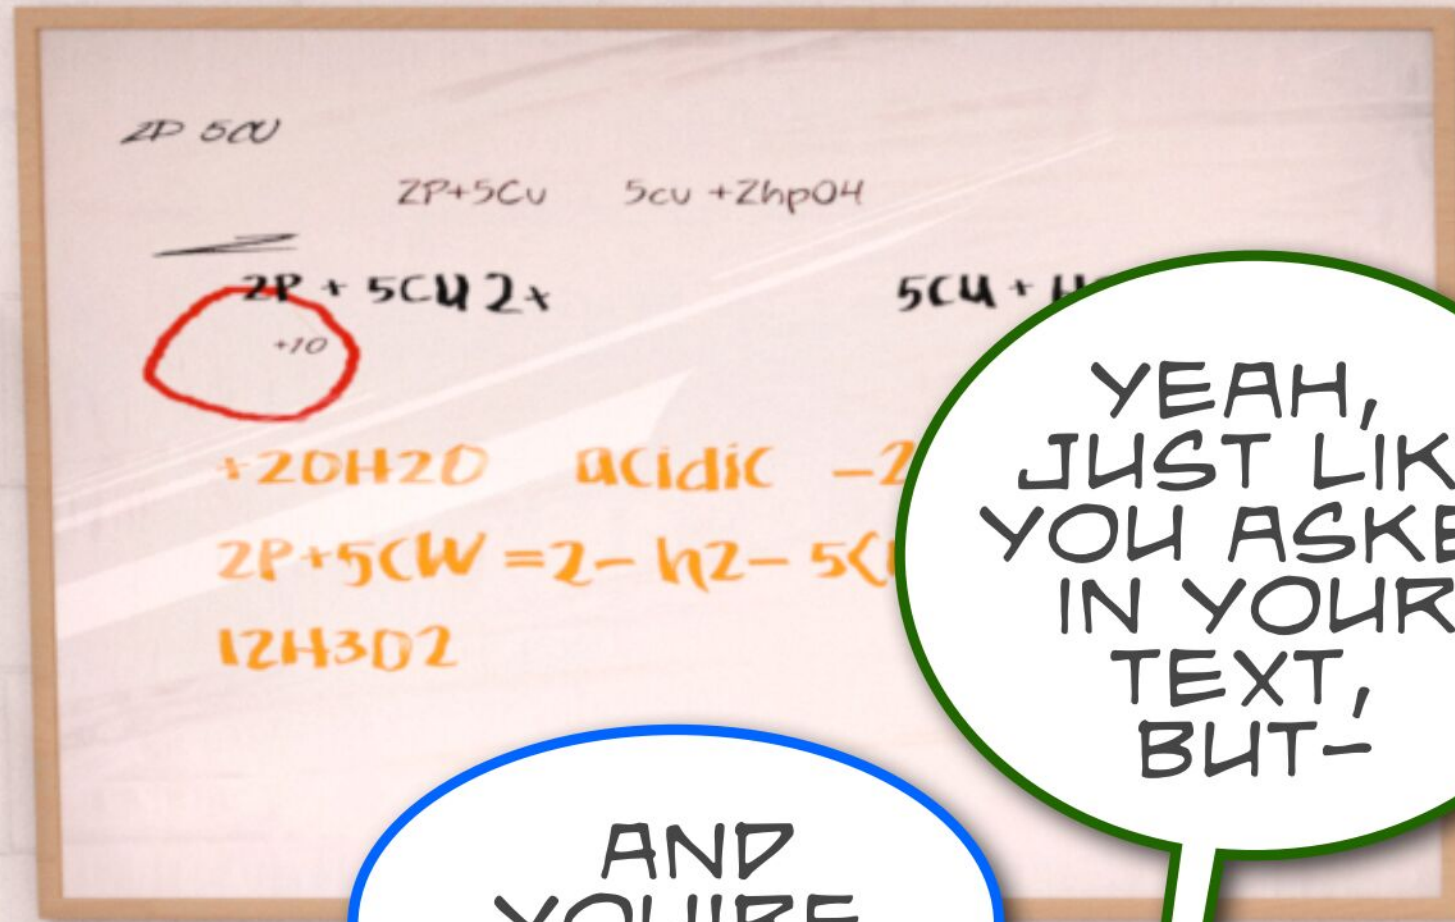 2P 5CU
2P+5Cu 5cu +2hpO4
2P + 5CU 2+ 5CU +
+10
+20H2O acidic -2
2P+5CW =2- h2- 5C
12H3O2
YEAH,
JUST LIK
YOU ASKE
IN YOUR
TEXT,
BUT-
AND
YOU'RE